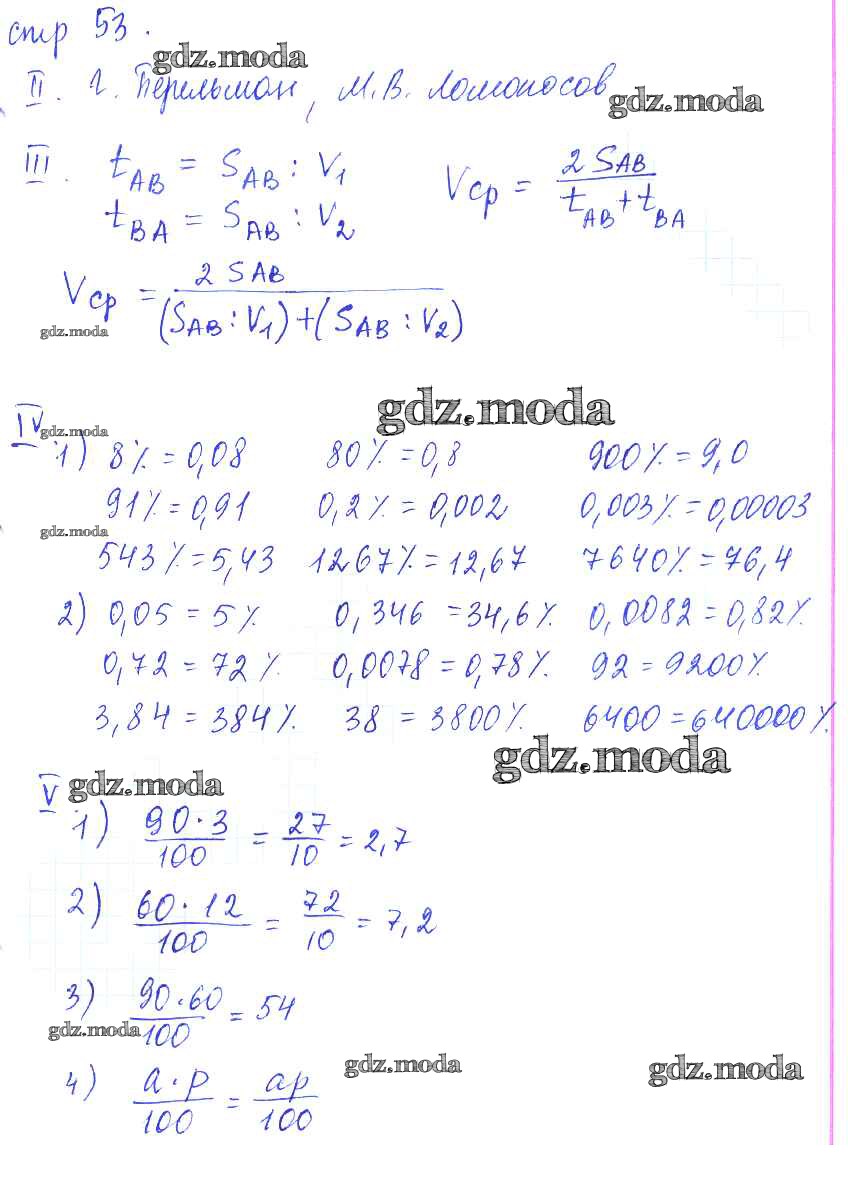 стр 53.
gdz.moda
II. Г. Перельман, М.В. Ломоносов
gdz.moda
III. tAB = SAB : V1
tBA = SAB : V2
Vср = 2 SAB / tAB + tBA
Vср = 2 SAB / (SAB : V1) + (SAB : V2)
gdz.moda
gdz.moda
IV gdz.moda
1) 8% = 0,08 80% = 0,8 900% = 9,0
91% = 0,91 0,2% = 0,002 0,003% = 0,00003
gdz.moda
543% = 5,43 1267% = 12,67 7640% = 76,4
2) 0,05 = 5% 0,346 = 34,6% 0,0082 = 0,82%
0,72 = 72% 0,0078 = 0,78% 92 = 9200%
3,84 = 384% 38 = 3800% 6400 = 640000%
gdz.moda
V gdz.moda
1) 90·3 / 100 = 27 / 10 = 2,7
2) 60·12 / 100 = 72 / 10 = 7,2
3) 90·60 / 100 = 54
gdz.moda
gdz.moda
gdz.moda
4) a·p / 100 = ap / 100